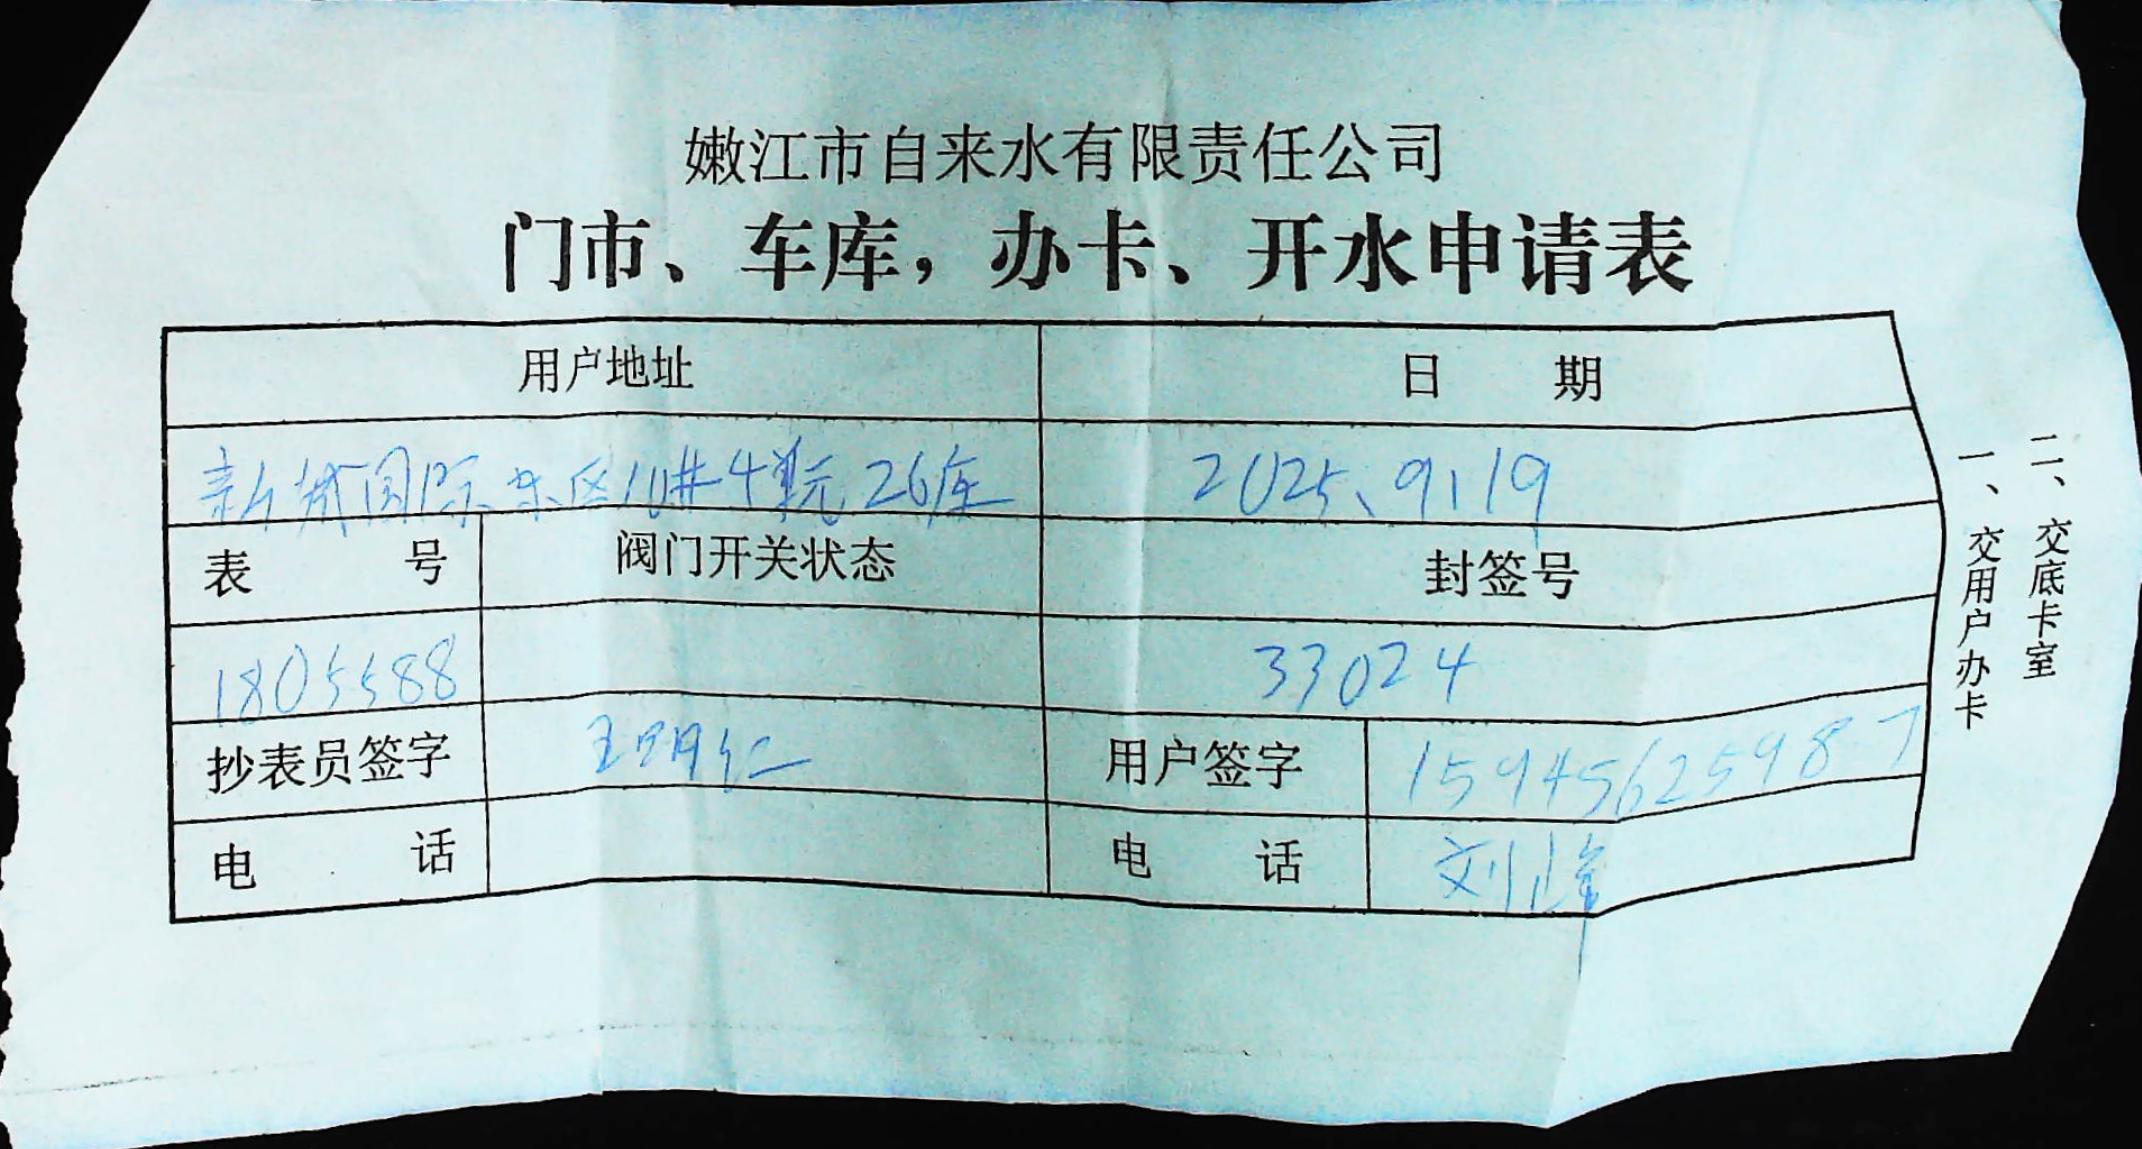 嫩江市自来水有限责任公司
门市、车库，办卡、开水申请表
用户地址 日 期
新城国际东区10#4单元26库 2025、9、19
表 号 阀门开关状态 封签号
1805588 33024
抄表员签字 王明仁 用户签字 15945625987
电 话 电 话 刘峰
一、交用户办卡
二、交底卡室